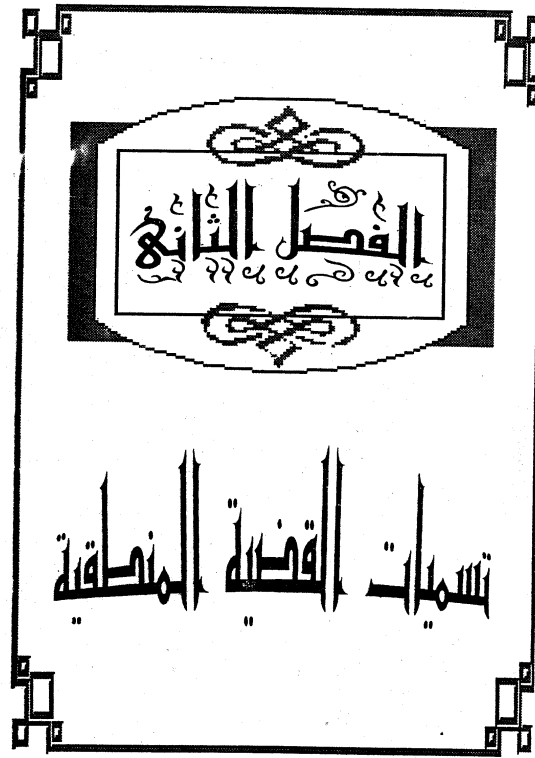 الفصل الثاني
تسميات القضية المنطقية